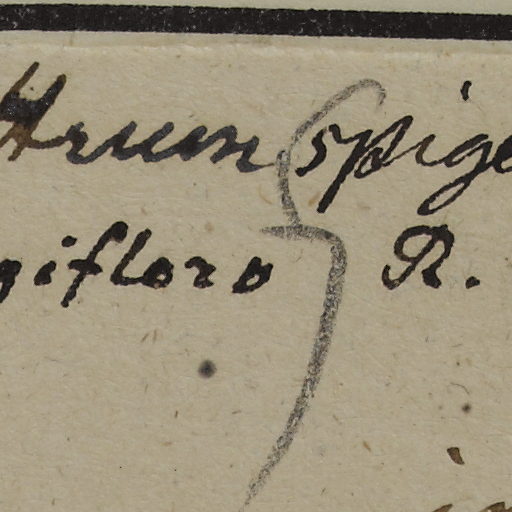 Hrum spige
giflora R.